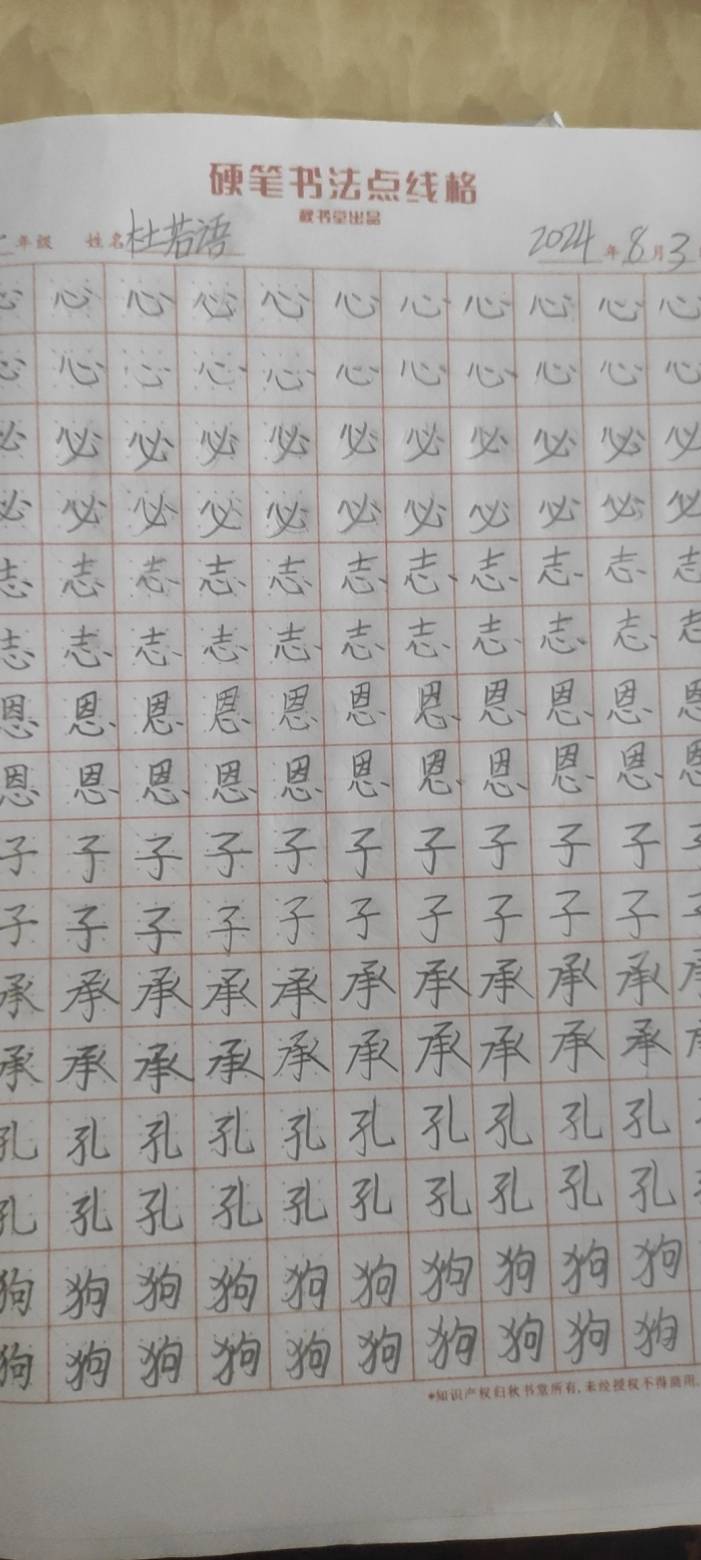 硬笔书法点线格
秋书堂出品
年级 姓名 杜若语 2024年8月3
心心心心心心心心心心心
心心心心心心心心心心心
必必必必必必必必必必必
必必必必必必必必必必必
志志志志志志志志志志志
志志志志志志志志志志志
恩恩恩恩恩恩恩恩恩恩恩
恩恩恩恩恩恩恩恩恩恩恩
子子子子子子子子子子子
子子子子子子子子子子子
承承承承承承承承承承承
承承承承承承承承承承承
孔孔孔孔孔孔孔孔孔孔
孔孔孔孔孔孔孔孔孔孔
狗狗狗狗狗狗狗狗狗狗
狗狗狗狗狗狗狗狗狗狗
*知识产权归秋书堂所有,未经授权不得商用.